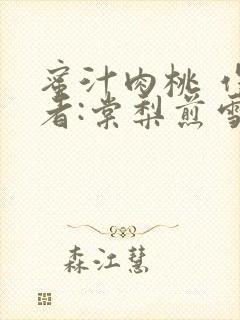 蜜汁肉桃
者:棠梨煎雪
森江慧